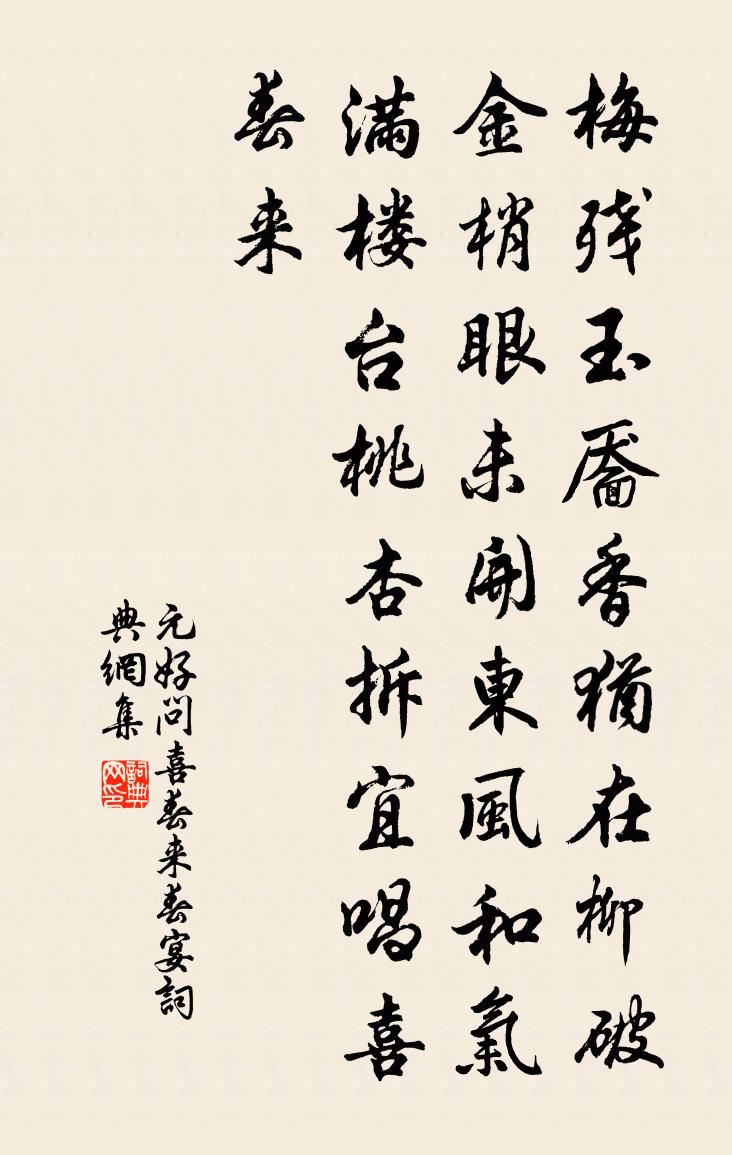 梅残玉靥香猶在柳破
金梢眼未開東風和氣
满楼台桃杏拆宜唱喜
春来
元好问喜春来春宴詞
典網集
詞典网印